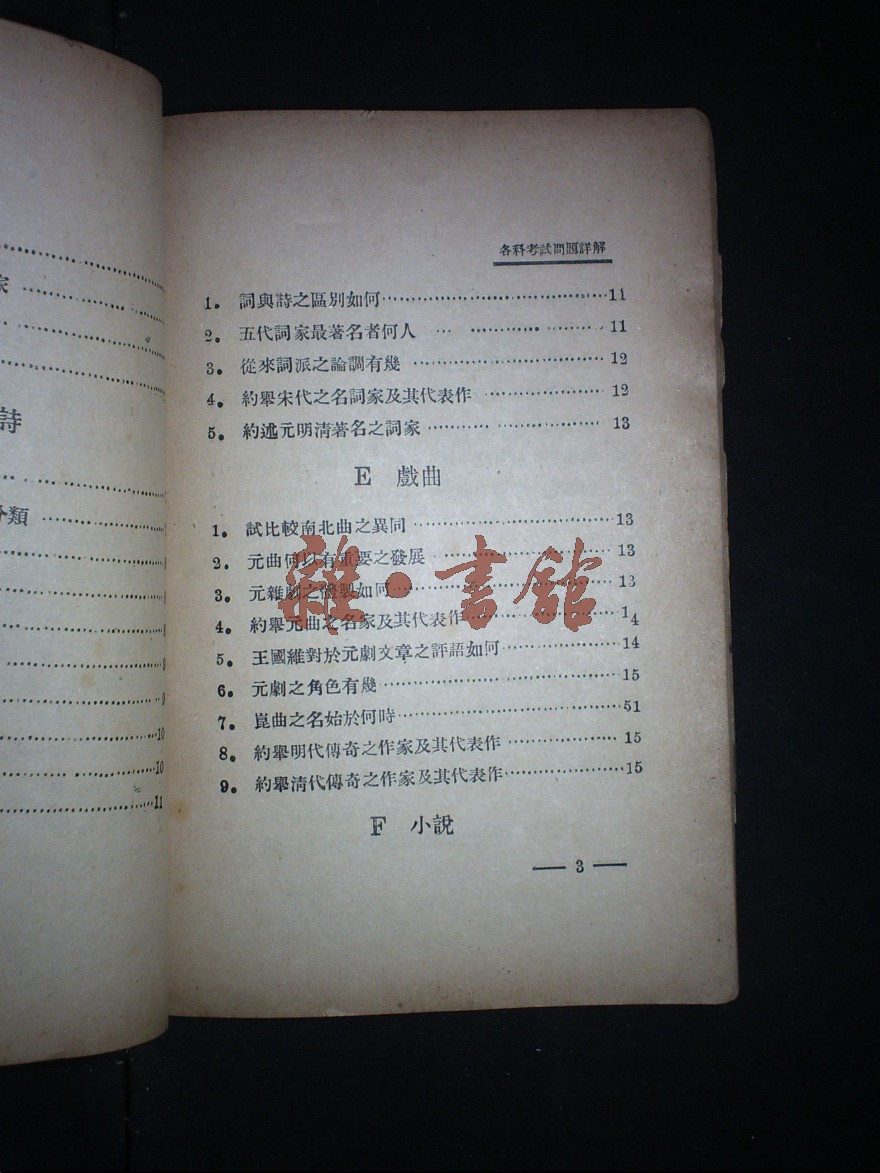 家
詩
分類
10
10
11
各科考試問題詳解
1。 詞與詩之區別如何………11
2。 五代詞家最著名者何人………11
3。 從來詞派之論調有幾………12
4。 約舉宋代之名詞家及其代表作………12
5。 約述元明清著名之詞家………13
E 戲曲
1。 試比較南北曲之異同………13
2。 元曲何以有重要之發展………13
3。 元雜劇之 如何………13
4。 約舉元曲之名家及其代表作………14
5。 王國維對於元劇文章之評語如何………14
6。 元劇之角色有幾………15
7。 崑曲之名始於何時………51
8。 約舉明代傳奇之作家及其代表作………15
9。 約舉清代傳奇之作家及其代表作………15
F 小說
— 3 —
雜·書館